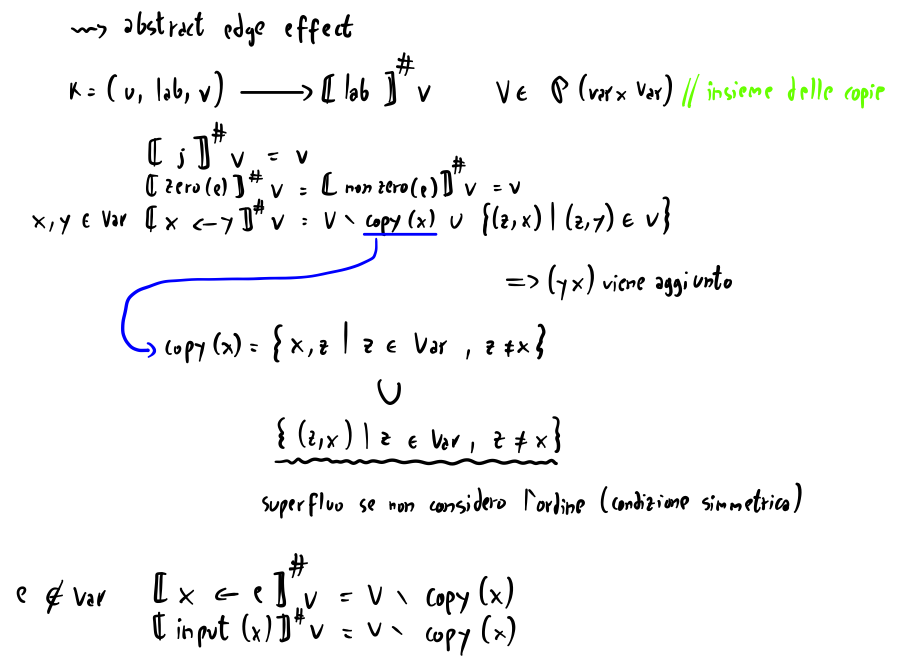 ⇝ abstract edge effect
K = (u, lab, v) ⟶ ⟦ lab ⟧# v V ∈ ℘ (var × Var) // insieme delle copie
⟦ ; ⟧# v = v
⟦ zero(e) ⟧# v = ⟦ non zero(e) ⟧# v = v
x, y ∈ Var ⟦ x ← y ⟧# v = V \ copy(x) ∪ {(z,x) | (z,y) ∈ v}
=> (yx) viene aggiunto
copy(x) = { x, z | z ∈ Var , z ≠ x }
∪
{ (z,x) | z ∈ Var , z ≠ x }
superfluo se non considero l'ordine (condizione simmetrica)
e ∉ Var ⟦ x ← e ⟧# v = V \ copy(x)
⟦ input (x) ⟧# v = V \ copy(x)